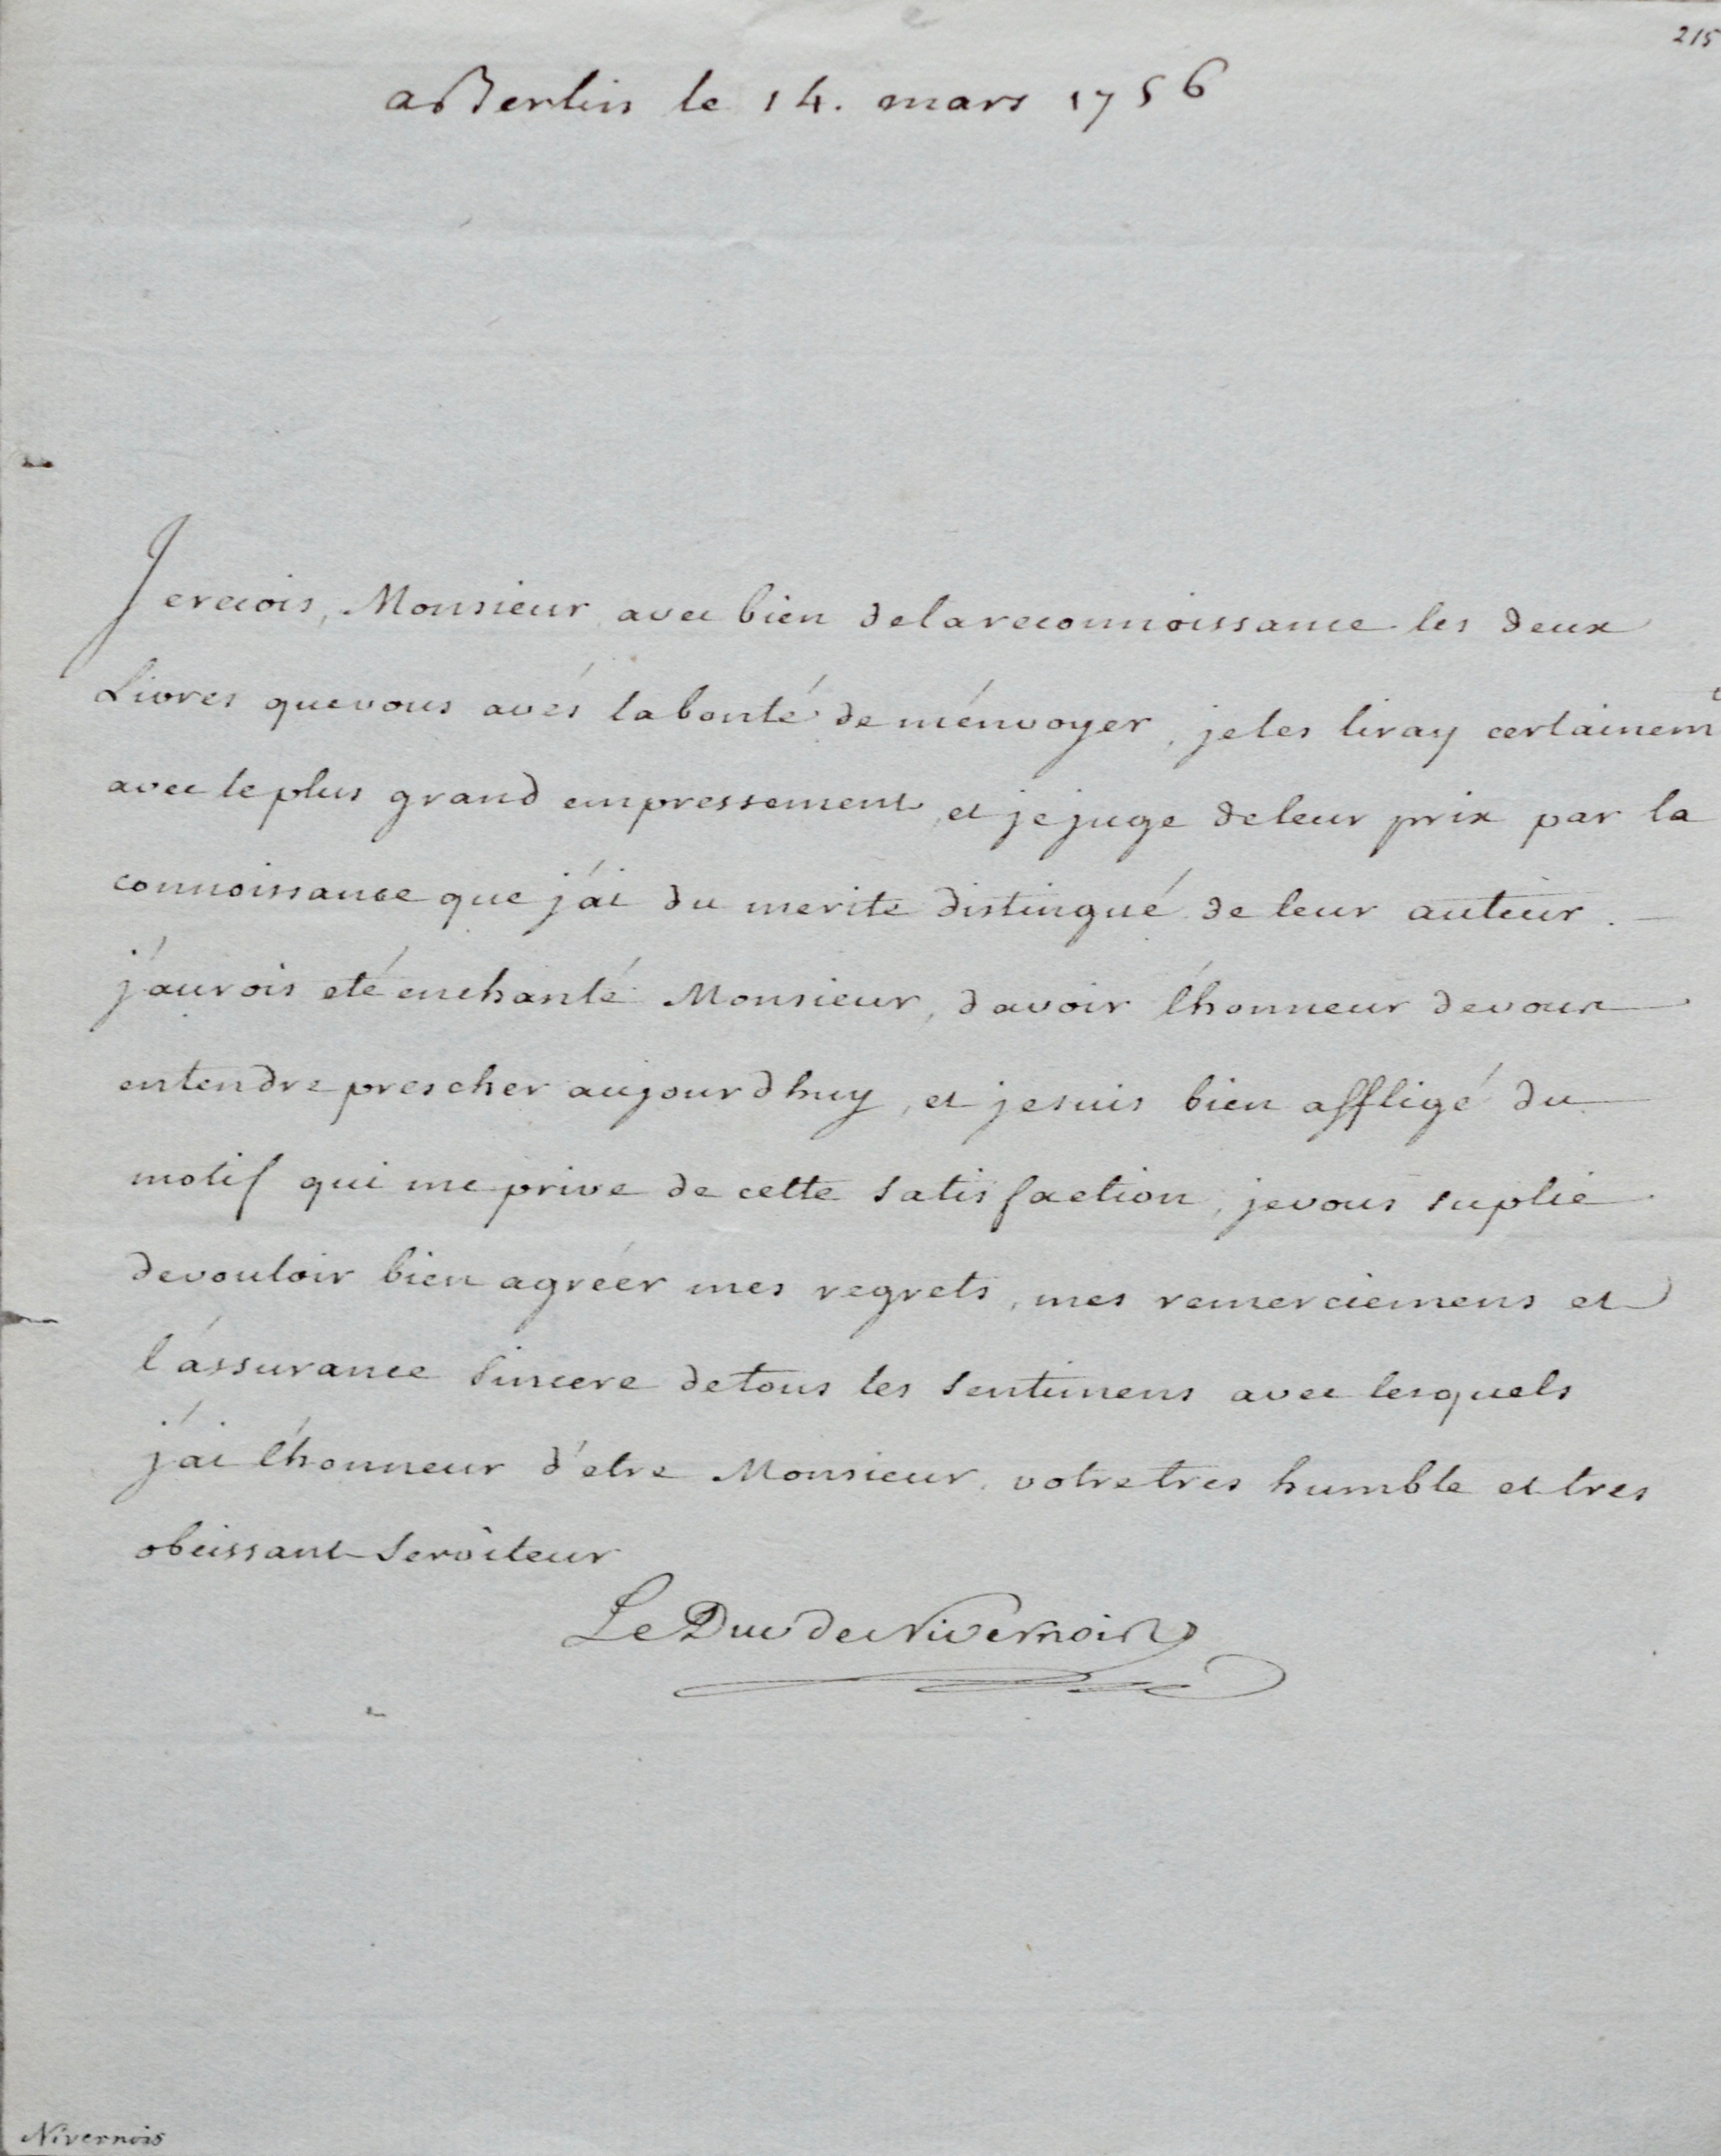 215
a Berlin le 14. mars 1756
Je recois, Monsieur, avec bien de la reconnoissance les deux
Livres que vous avés la bonté de m'énvoyer, je les liray certainemt
avec le plus grand empressement, et je juge de leur prix par la
connoissance que j'ai du merite distingué de leur auteur.
j'aurois eté enchanté Monsieur, d'avoir l'honneur de vous
entendre prescher aujourdhuy, et je suis bien affligé du
motif qui me prive de cette satisfaction, je vous suplie
de vouloir bien agréer mes regrets, mes remerciemens et
l'assurance sincere de tous les sentimens avec lesquels
j'ai l'honneur d'etre Monsieur, votre tres humble et tres
obeissant serviteur
Le Duc de Nivernois
Nivernois